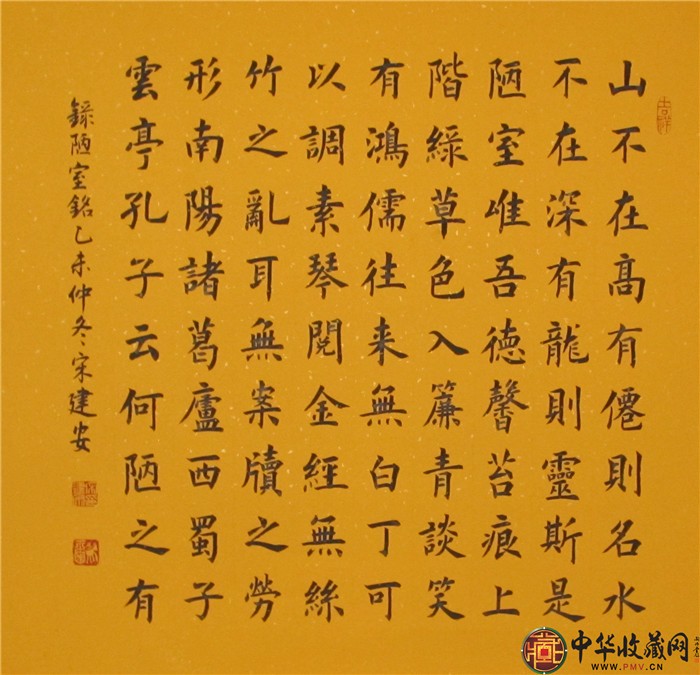 山不在高有僊則名水
不在深有龍則靈斯是
陋室唯吾德馨苔痕上
階綠草色入簾青談笑
有鴻儒往来無白丁可
以調素琴閱金經無絲
竹之亂耳無案牘之勞
形南陽諸葛廬西蜀子
雲亭孔子云何陋之有
録陋室銘乙未仲冬宋建安
吉祥
中华收藏网
WWW.PMV.CN